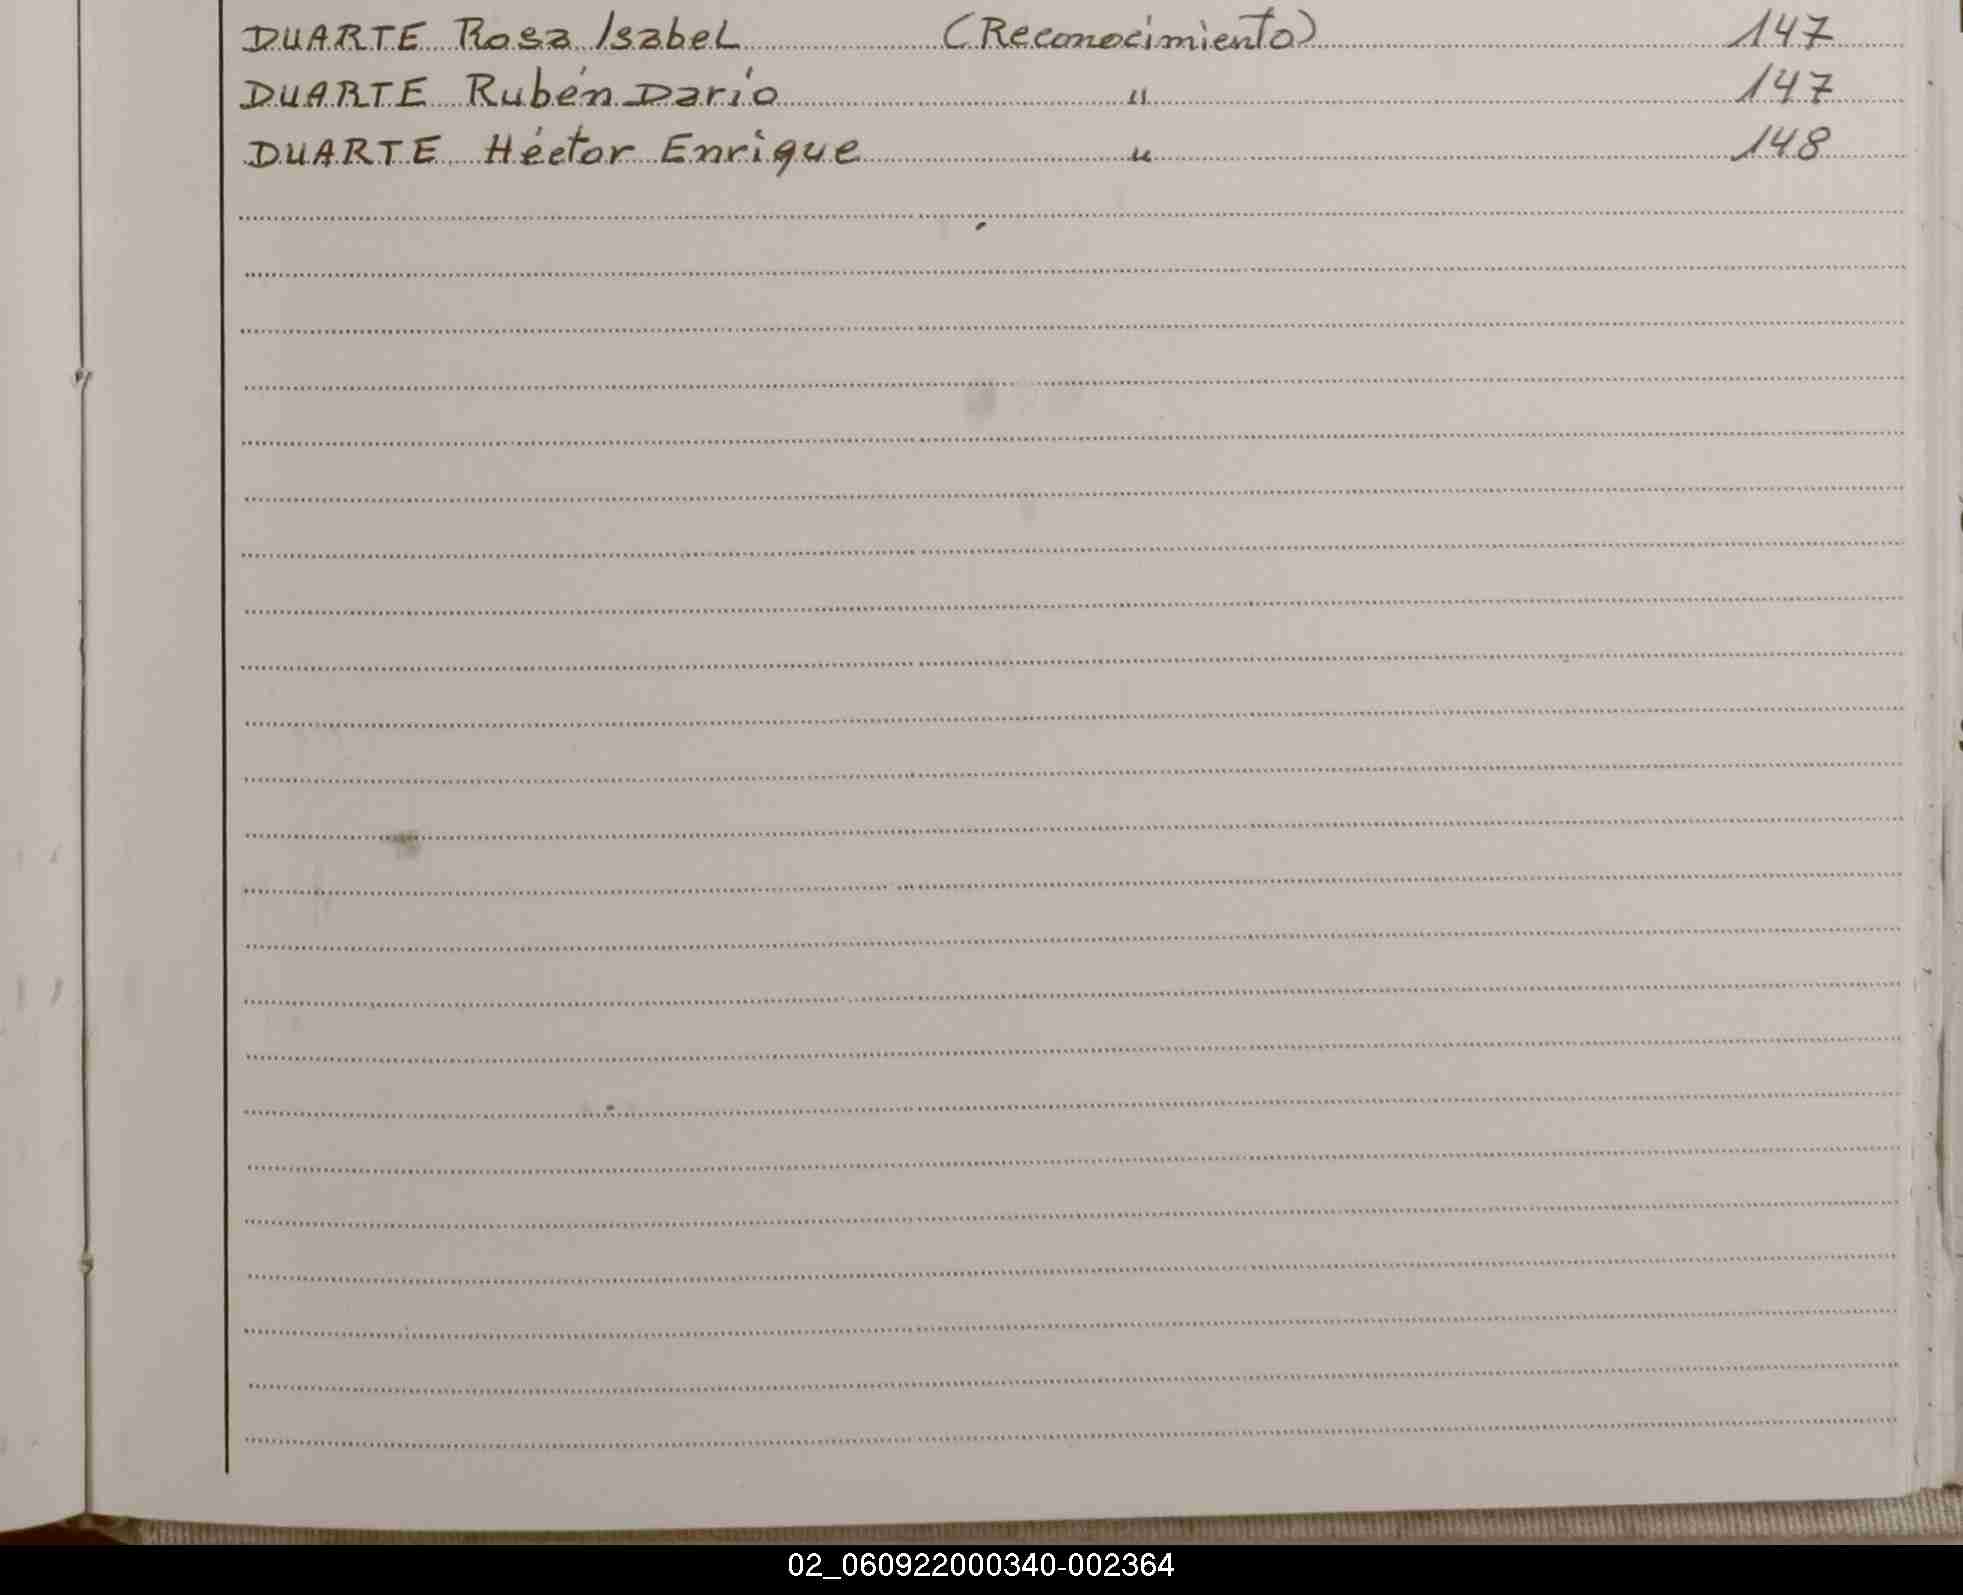 DUARTE Rosa Isabel (Reconocimiento) 147
DUARTE Rubén Darío " 147
DUARTE Héctor Enrique " 148
02_060922000340-002364